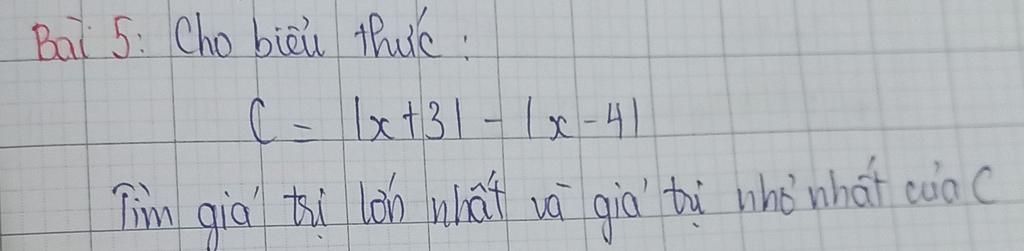 Bài 5: Cho biểu thức:
C = |x+3| - |x-4|
Tìm giá trị lớn nhất và giá trị nhỏ nhất của C